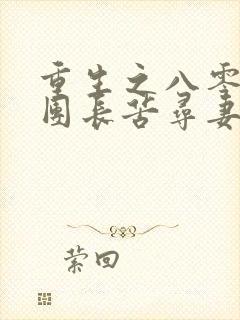 重生之八零
团长苦寻妻
萦回